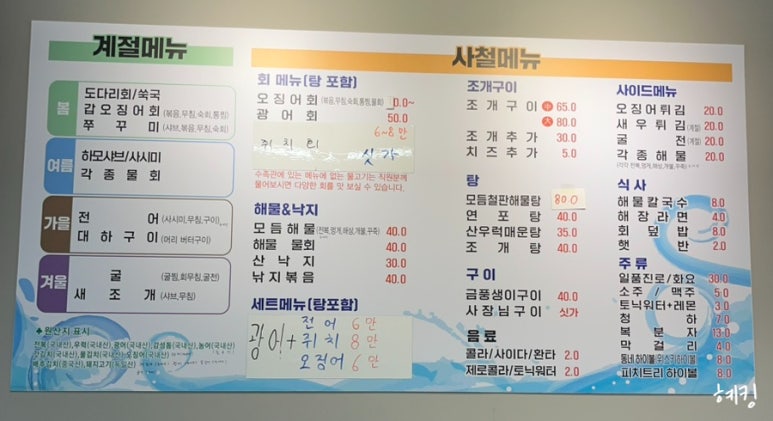 계절메뉴
봄
도다리회/쑥국
갑오징어회 (볶음,무침,숙회,통찜)
쭈꾸미 (샤브,볶음,무침,숙회)
여름
하모샤브/사시미
각종물회
가을
전어 (사시미,무침,구이)
대하구이 (머리 버터구이)
겨울
굴 (굴찜,회무침,굴전)
새조개 (샤브,무침)
♣원산지 표시
사철메뉴
회 메뉴(탕 포함)
오징어회 (볶음,무침,숙회,통찜,물회) 0.0~
광어회 50.0
쥐치회 6~8만
싯가
수족관에 있는 메뉴에 없는 물고기는 직원분께
물어보시면 다양한 회를 맛 보실 수 있습니다.
해물&낙지
모듬해물 (전복,멍게,해삼,개불,꾸죽) 40.0
해물 물회 40.0
산낙지 30.0
낙지볶음 40.0
세트메뉴(탕포함)
광어+
전어 6만
쥐치 8만
오징어 6만
조개구이
조개구이 小 65.0
大 80.0
조개추가 30.0
치즈추가 5.0
탕
모듬철판해물탕 80.0
연포탕 40.0
산우럭매운탕 35.0
조개탕 40.0
구이
금풍생이구이 40.0
사장님구이 싯가
음료
콜라/사이다/환타 2.0
제로콜라/토닉워터 2.0
사이드메뉴
오징어튀김 20.0
새우튀김 (계절) 20.0
굴전 (계절) 20.0
각종해물 20.0
(각각 전복,멍게,해삼,개불,꾸죽)
식사
해물칼국수 8.0
해장라면 4.0
회덮밥 8.0
햇반 2.0
주류
일품진로/화요 30.0
소주/맥주 5.0
토닉워터+레몬 3.0
청하 7.0
복분자 13.0
막걸리 4.0
동네하이볼 위스키하이볼 8.0
피치트리 하이볼 8.0
혜킹